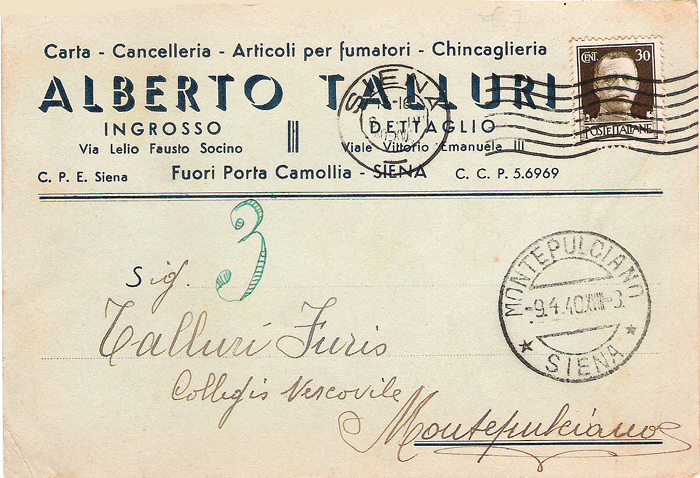 Carta - Cancelleria - Articoli per fumatori - Chincaglieria
ALBERTO TALLURI
INGROSSO
DETTAGLIO
Via Lelio Fausto Socino
Viale Vittorio Emanuele III
C. P. E. Siena
Fuori Porta Camollia - SIENA
C. C. P. 5.6969
SIENA
CENT. 30
POSTE ITALIANE
3
MONTEPULCIANO
-9.4.40.XVIII-3
SIENA
Sig.
Talluri Furis
Collegio Vescovile
Montepulciano